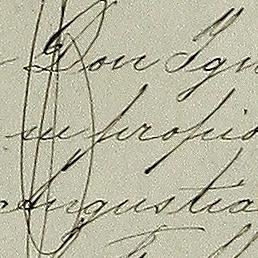 Don Ign
su propio
Angustia